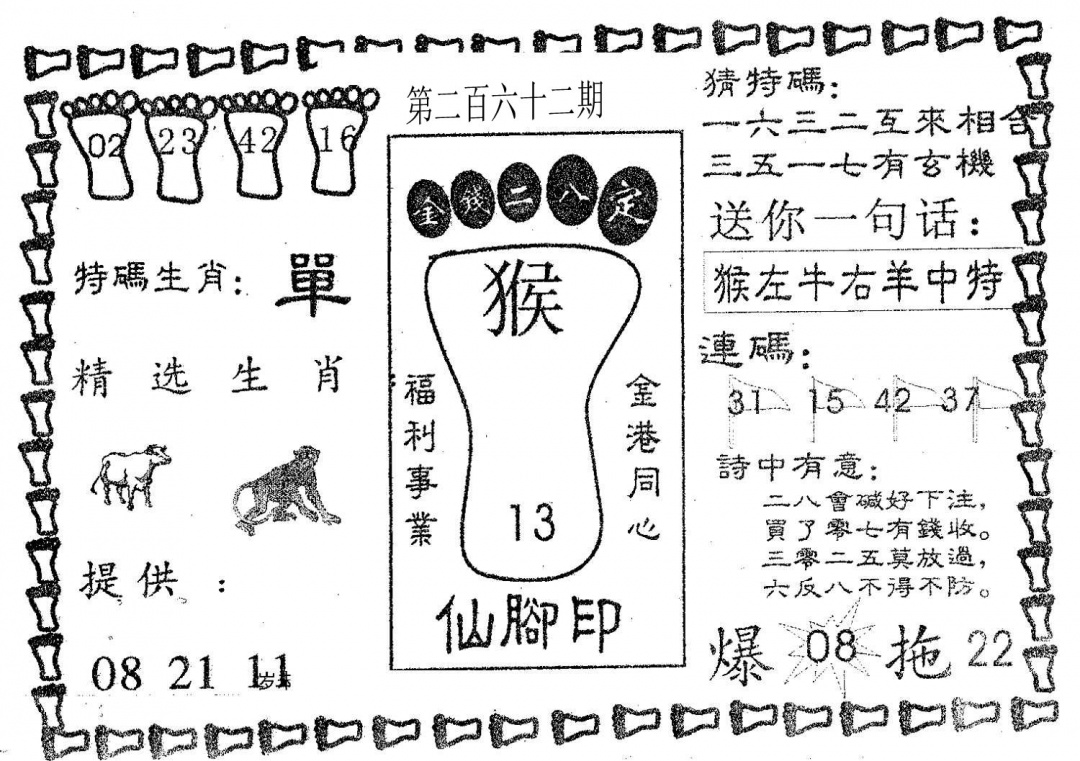 第二百六十二期
02 23 42 16
特碼生肖：單
精选生肖
提供：
08 21 11
金錢二八定
猴
福利事業
金港同心
13
仙腳印
猜特碼：
一六三二互來相合
三五一七有玄機
送你一句话：
猴左牛右羊中特
連碼：
31 15 42 37
詩中有意：
二八會碱好下注，
買了零七有錢收。
三零二五莫放過，
六反八不得不防。
爆 08 拖 22